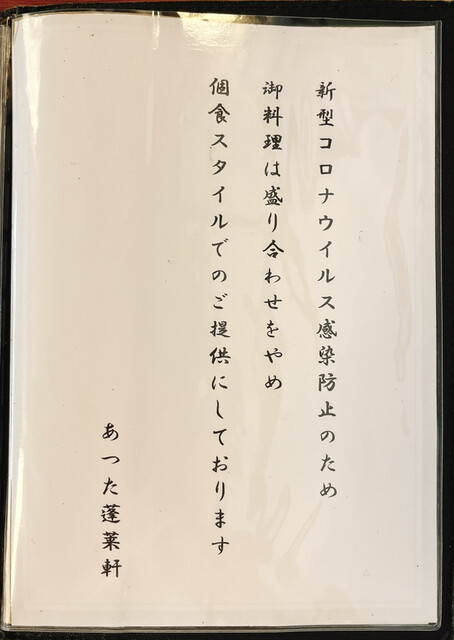 新型コロナウイルス感染防止のため
御料理は盛り合わせをやめ
個食スタイルでのご提供にしております
あつた蓬莱軒